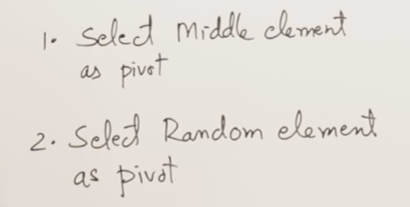 1. Select Middle element
as pivot
2. Select Random element
as pivot